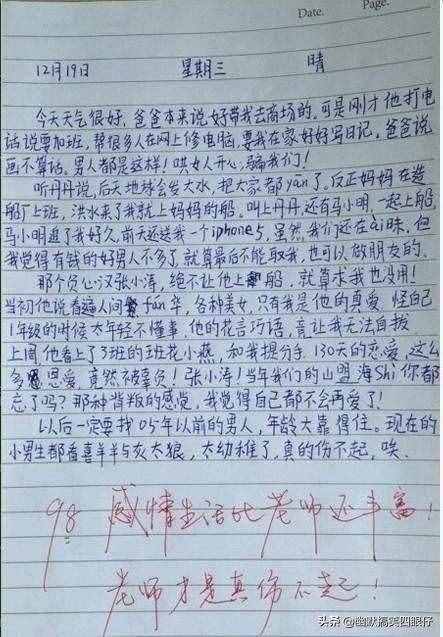 Date.    Page.
12月19日    星期三    晴
今天天气很好，爸爸本来说好带我去商场的，可是刚才他打电
话说要加班，帮很多人在网上修电脑，要我在家好好写日记，爸爸说
画不算话，男人都是这样！哄女人开心，骗我们！
听丹丹说，后天地球会发大水，把大家都yān了，反正妈妈在造
船厂上班，洪水来了我就上妈妈的船。叫上丹丹，还有马小明，一起上船，
马小明追了我好久，前天还送我一个iphone5，虽然我们还在ai昧，但
我觉得有钱的好男人不多了，就算最后不能娶我，也可以做朋友的。
那个负心汉张小涛，绝不让他上船，就算求我也没用！
当初他说看遍人间fán华，各种美女，只有我是他的真爱，怪自己
1年级的时候太年轻不懂事，他的花言巧语，竟让我无法自拔
上周他看上了3班的班花小燕，和我提分手，130天的恋爱，这么
多恩爱，竟然被辜负！张小涛！当年我们的山盟海Shi你都
忘了吗？那种背叛的感觉，我觉得自己都不会再爱了！
以后一定要找05年以前的男人，年龄大靠得住。现在的
小男生都看喜羊羊与灰太狼，太幼稚了，真的伤不起，唉、
98 感情生活比老师还丰富！
老师才是真伤不起！
头条 @幽默搞笑四眼仔